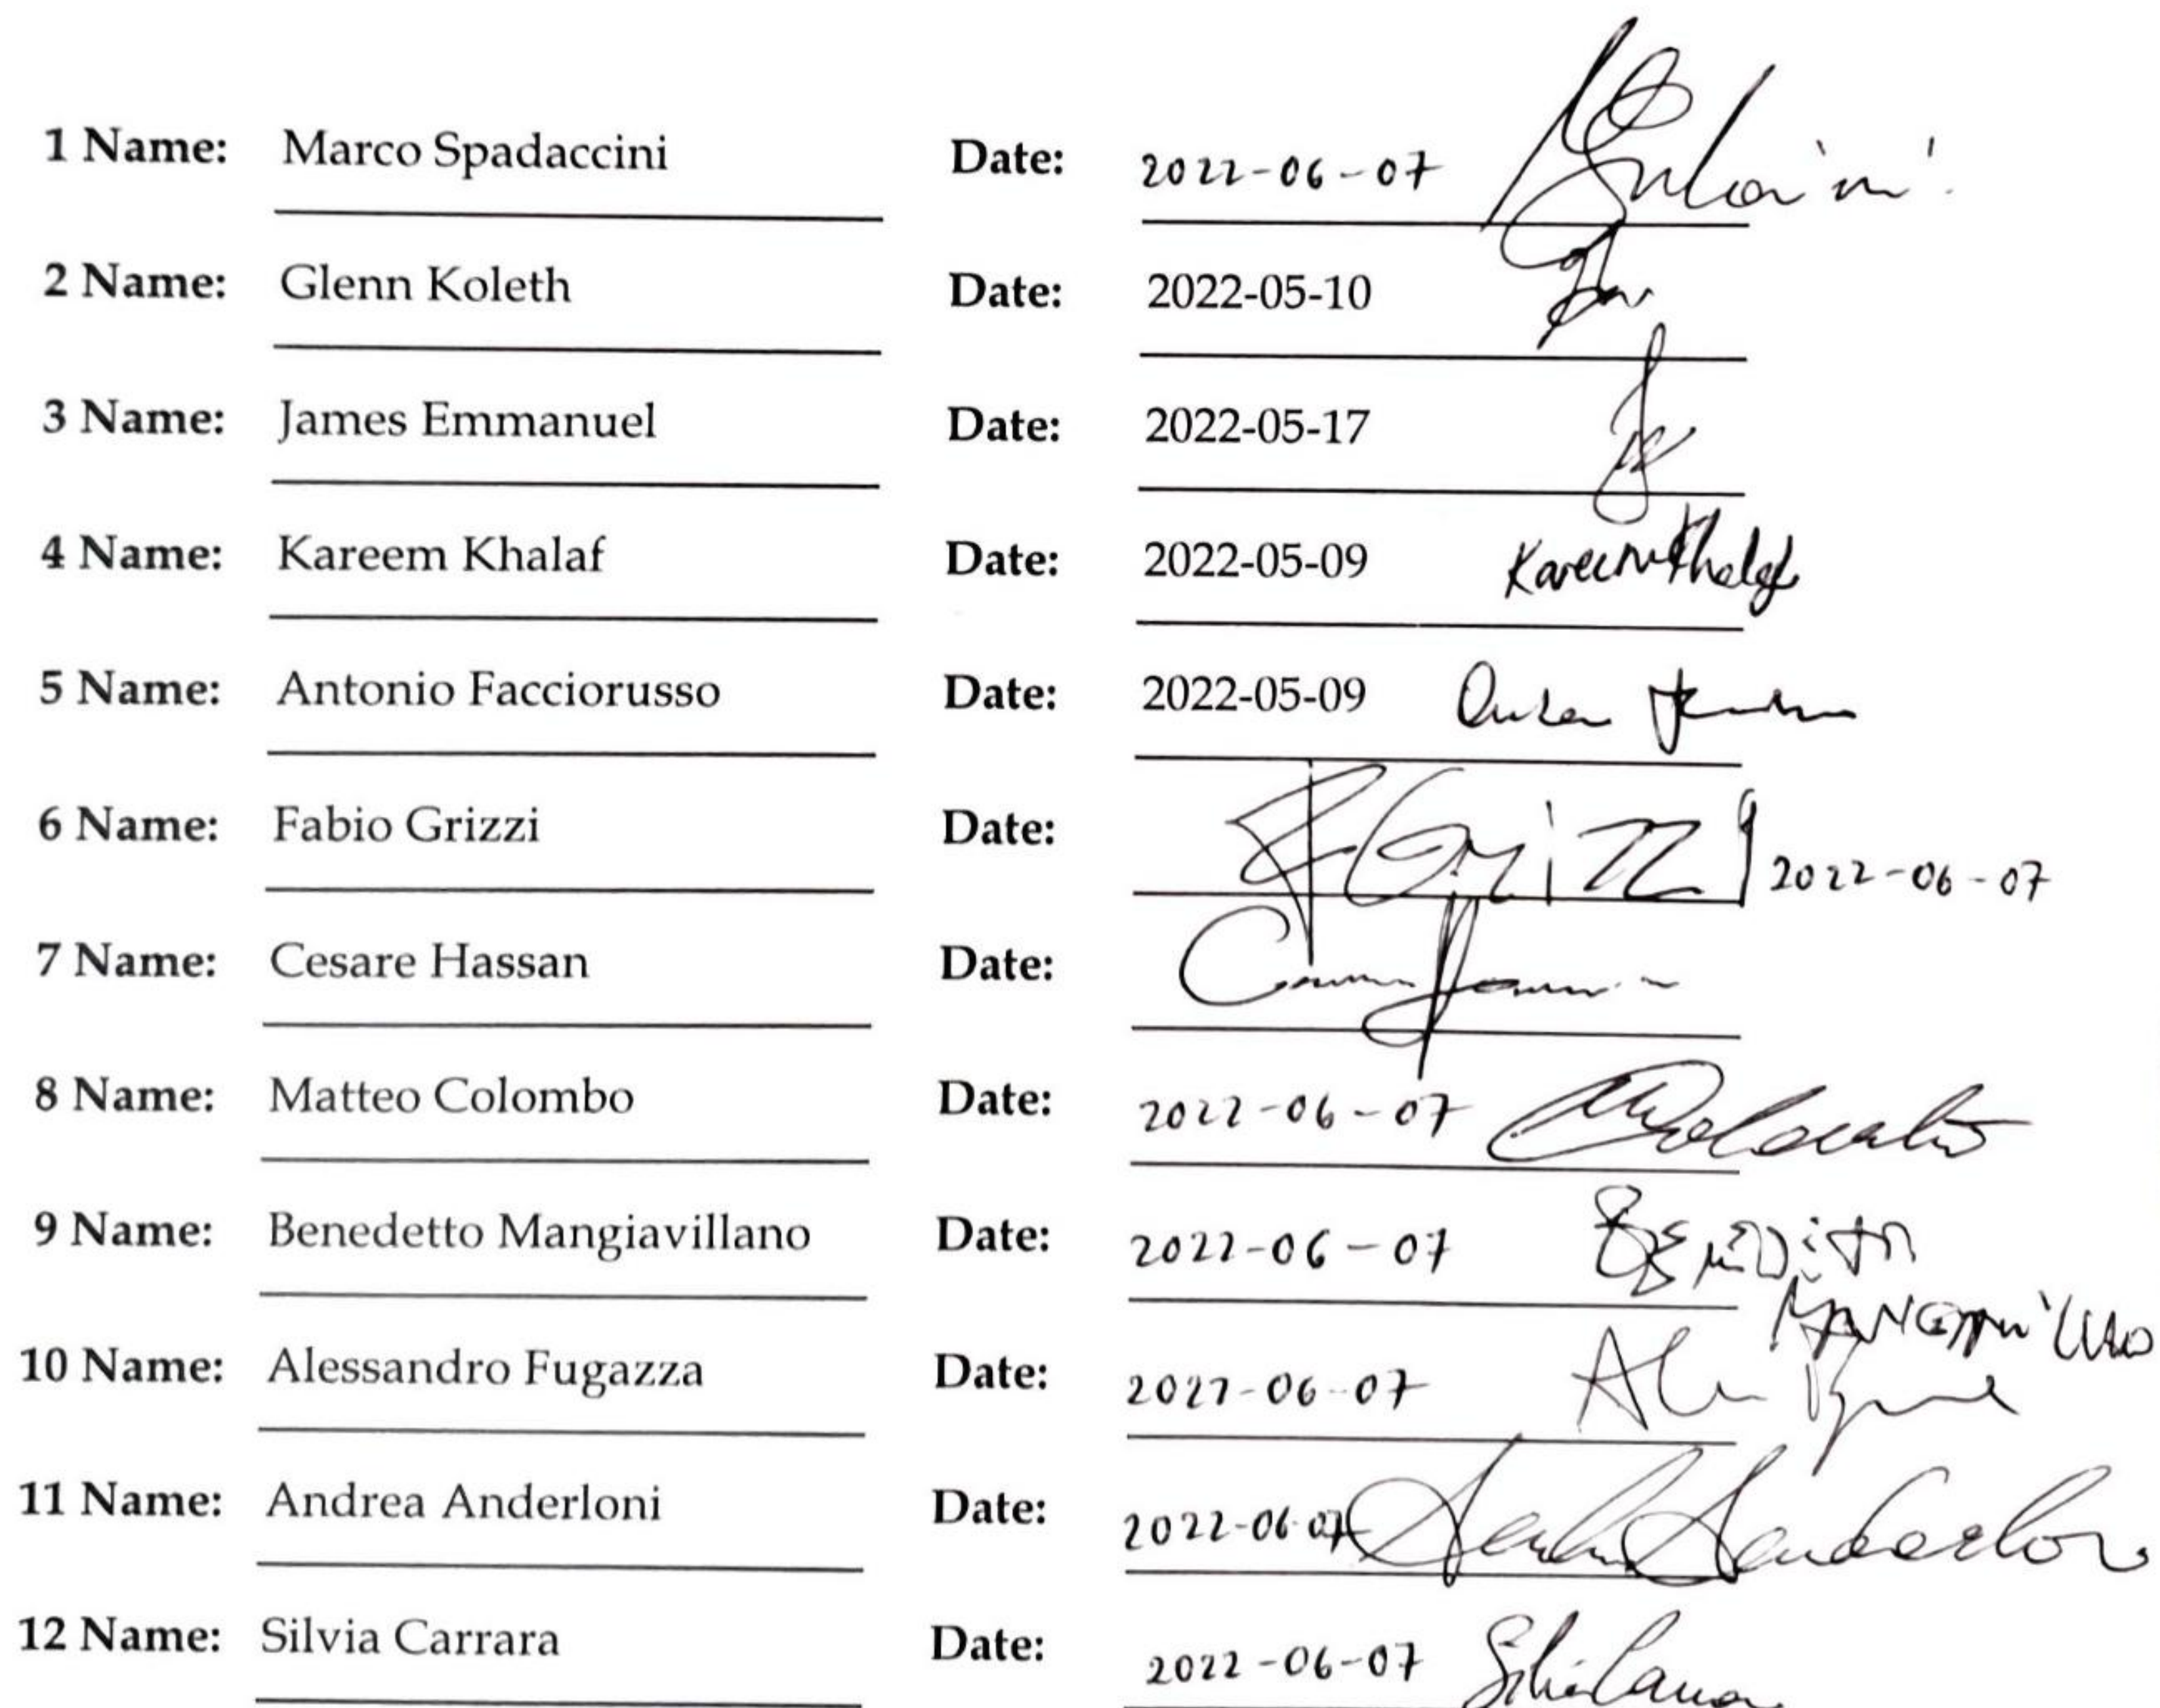 1 Name: Marco Spadaccini Date: 2022-06-07
2 Name: Glenn Koleth Date: 2022-05-10
3 Name: James Emmanuel Date: 2022-05-17
4 Name: Kareem Khalaf Date: 2022-05-09 Kareem Khalaf
5 Name: Antonio Facciorusso Date: 2022-05-09
6 Name: Fabio Grizzi Date: F Grizzi 2022-06-07
7 Name: Cesare Hassan Date:
8 Name: Matteo Colombo Date: 2022-06-07
9 Name: Benedetto Mangiavillano Date: 2022-06-07
10 Name: Alessandro Fugazza Date: 2022-06-07
11 Name: Andrea Anderloni Date: 2022-06-07
12 Name: Silvia Carrara Date: 2022-06-07